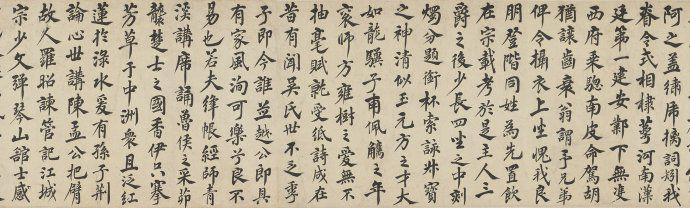 阿之盖繡席摛詞矧我
眷令式相棣萼河南漢
廷第一建安鄴下無雙
西府乘驄南皮命駕胡
猶讓齒衰翁謂予兄弟
俾令攝衣上坐愧我良
朋登階同姓為先置飲
在宗載考於是主人三
爵之後少長四坐之中刻
燭分題銜杯索詠叔寶
之神清似玉元方之才大
如龍驥子甫佩觿之年
袞師方雍樹之愛無不
抽毫賦就受紙詩成在
昔有聞吳氏世不乏季
子即今誰並越公即具
有家風洵可樂子良不
易也若夫絳帳經師青
溪講席誦魯侯之采茆
襲楚士之國香伊搴
芳草于中洲眾且泛紅
蓮於淥水爰有孫子荊
論心世講陳孟公把臂
故人羅昭諫管記江城
宗少文彈琴山館士感